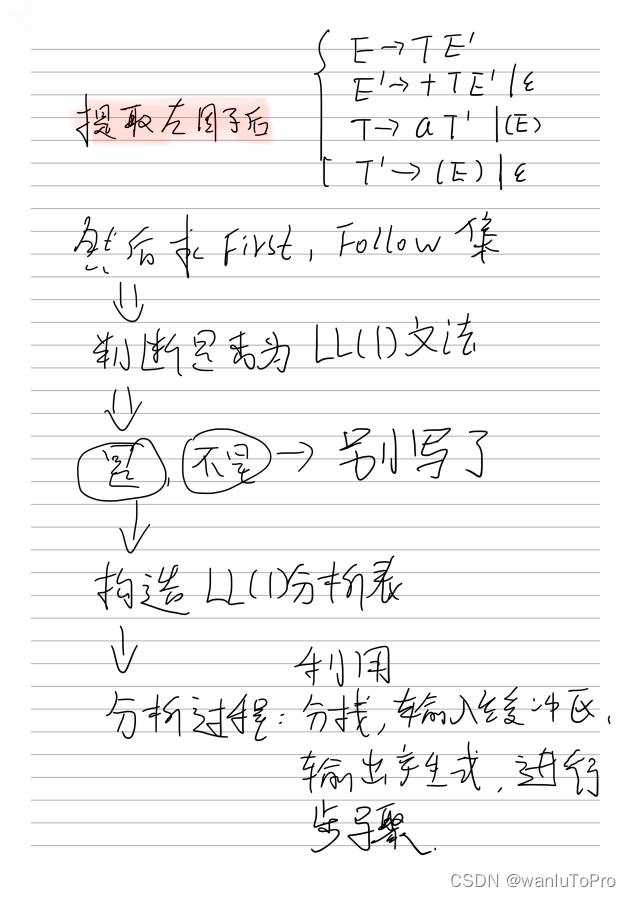 E→TE'
E'→+TE'|ε
提取左因子后
T→aT'|(E)
T'→(E)|ε
然后求First,Follow集
⇓
判断是否为LL(1)文法
⇓
是,不是→别写了
↓
构造LL(1)分析表
↓
利用
分析过程:分栈,输入缓冲区,
输出产生式,进行
步骤.
CSDN @wanluToPro